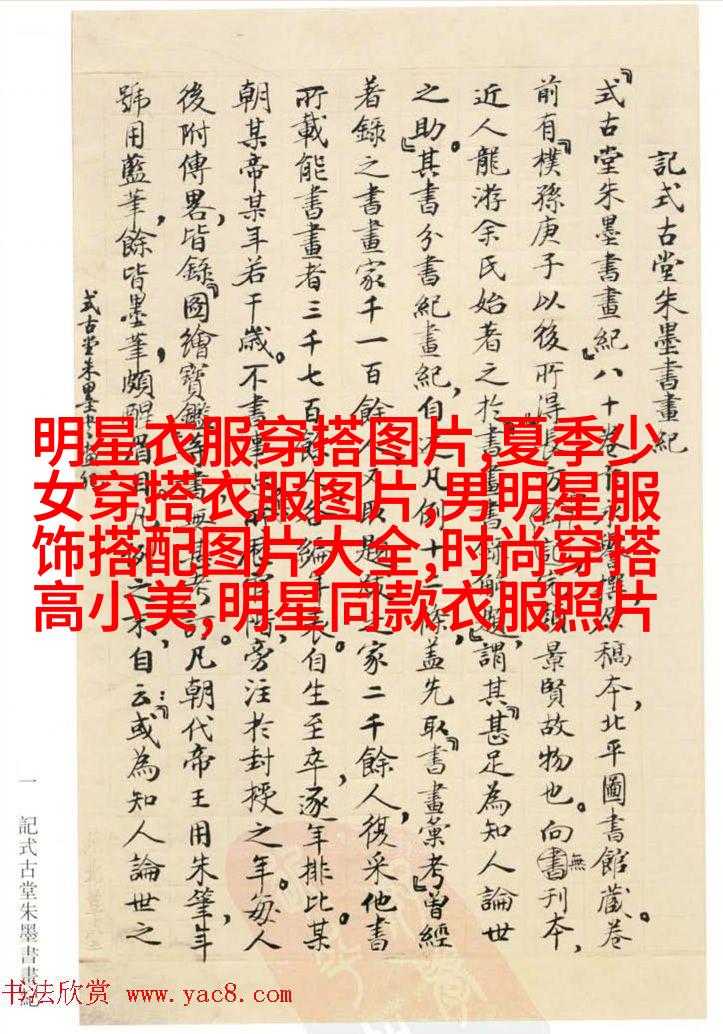 記式古堂朱墨書畫紀
『式古堂朱墨書畫紀』八十卷稿本，北平圖書館藏。卷
前有『樸孫庚子以後所得長方景賢故物也。向無書刊本，
近人龍游余氏始著之於書畫書謂其『甚足為知人論世
之助。』其書分書紀畫紀，自凡例十條，蓋先取『書畫彙考』曾經
著錄之書畫家千一百餘人又取題之家二千餘人，復采他書
所載能書畫者三千七百餘人各編年表。自生至卒，逐年排比。某
朝某帝某年若干歲。不書旁注於封授之年。每人
後附傳畧，皆錄『圖繪寶鑑等書凡朝代帝王用朱筆，年
號用藍筆，餘皆墨筆，頗醒眉目之自云：或為知人論世之
式古堂朱墨書畫紀
一 記式古堂朱墨書畫紀
明星衣服穿搭图片,夏季少
女穿搭衣服图片,男明星服
饰搭配图片大全,时尚穿搭
高小美,明星同款衣服照片
书法欣赏 www.yac8.com